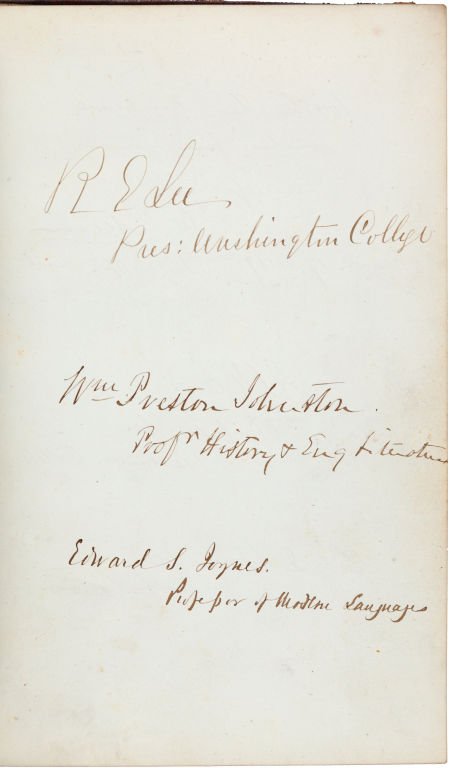 R E Lee
Pres: Washington College
Wm Preston Johnston.
Profr History & Eng Literature
Edward S. Joynes.
Professor of Modern Languages